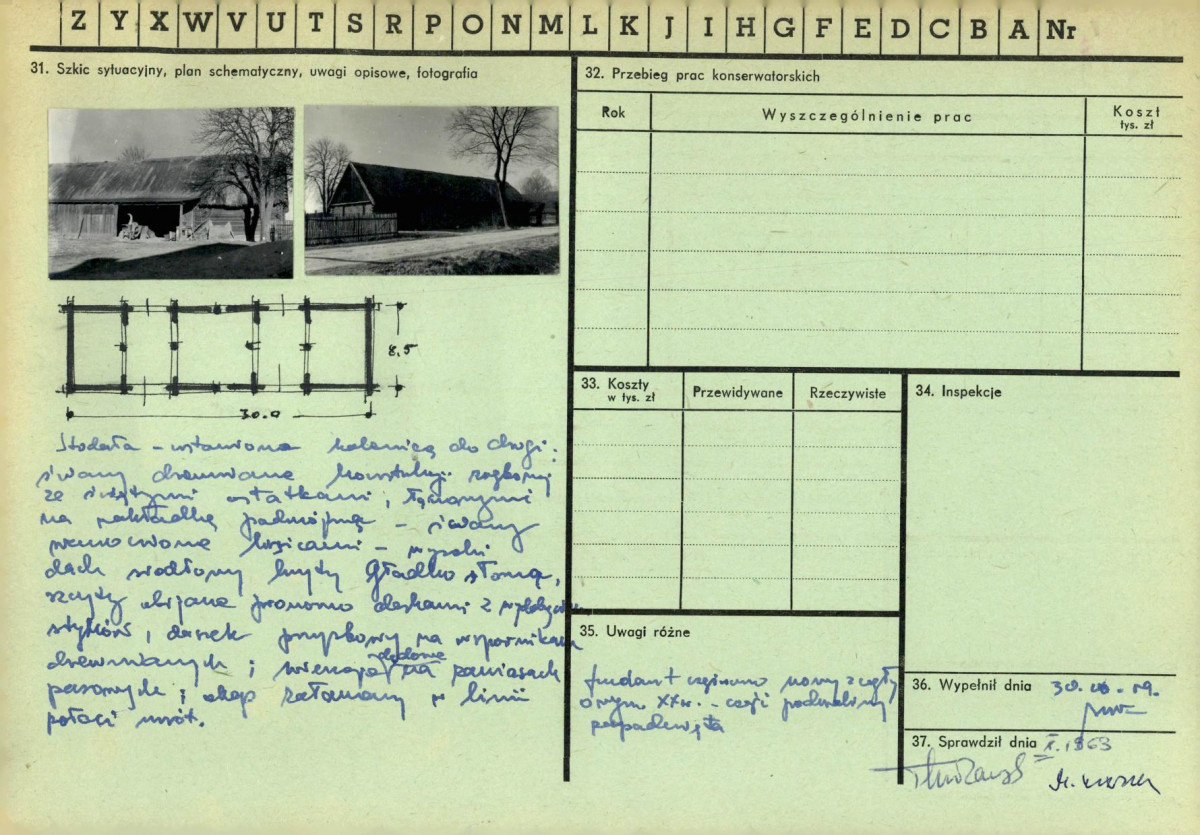 Z Y X W V U T S R P O N M L K J I H G F E D C B A Nr
31. Szkic sytuacyjny, plan schematyczny, uwagi opisowe, fotografia
8,5
30.0
Stodoła – ustawiona kalenicą do drogi;
ściany drewniane konstrukcji
ze ostatkami, łączonymi
na nakładkę podwójną – ściany
wzmocnione lisicami – wysoki
dach siodłowy kryty gładko słomą,
szczyty obijane pionowo deskami z
styków, daszek przyzbowy na wspornikach
drewnianych; na
; okap załamany w linii
połaci wrót.
32. Przebieg prac konserwatorskich
Rok
Wyszczególnienie prac
Koszt
tys. zł
33. Koszty
w tys. zł
Przewidywane
Rzeczywiste
34. Inspekcje
35. Uwagi różne
fundament częściowo nowy z cegły
XXw. – część podwaliny
36. Wypełnił dnia
37. Sprawdził dnia X. 1963